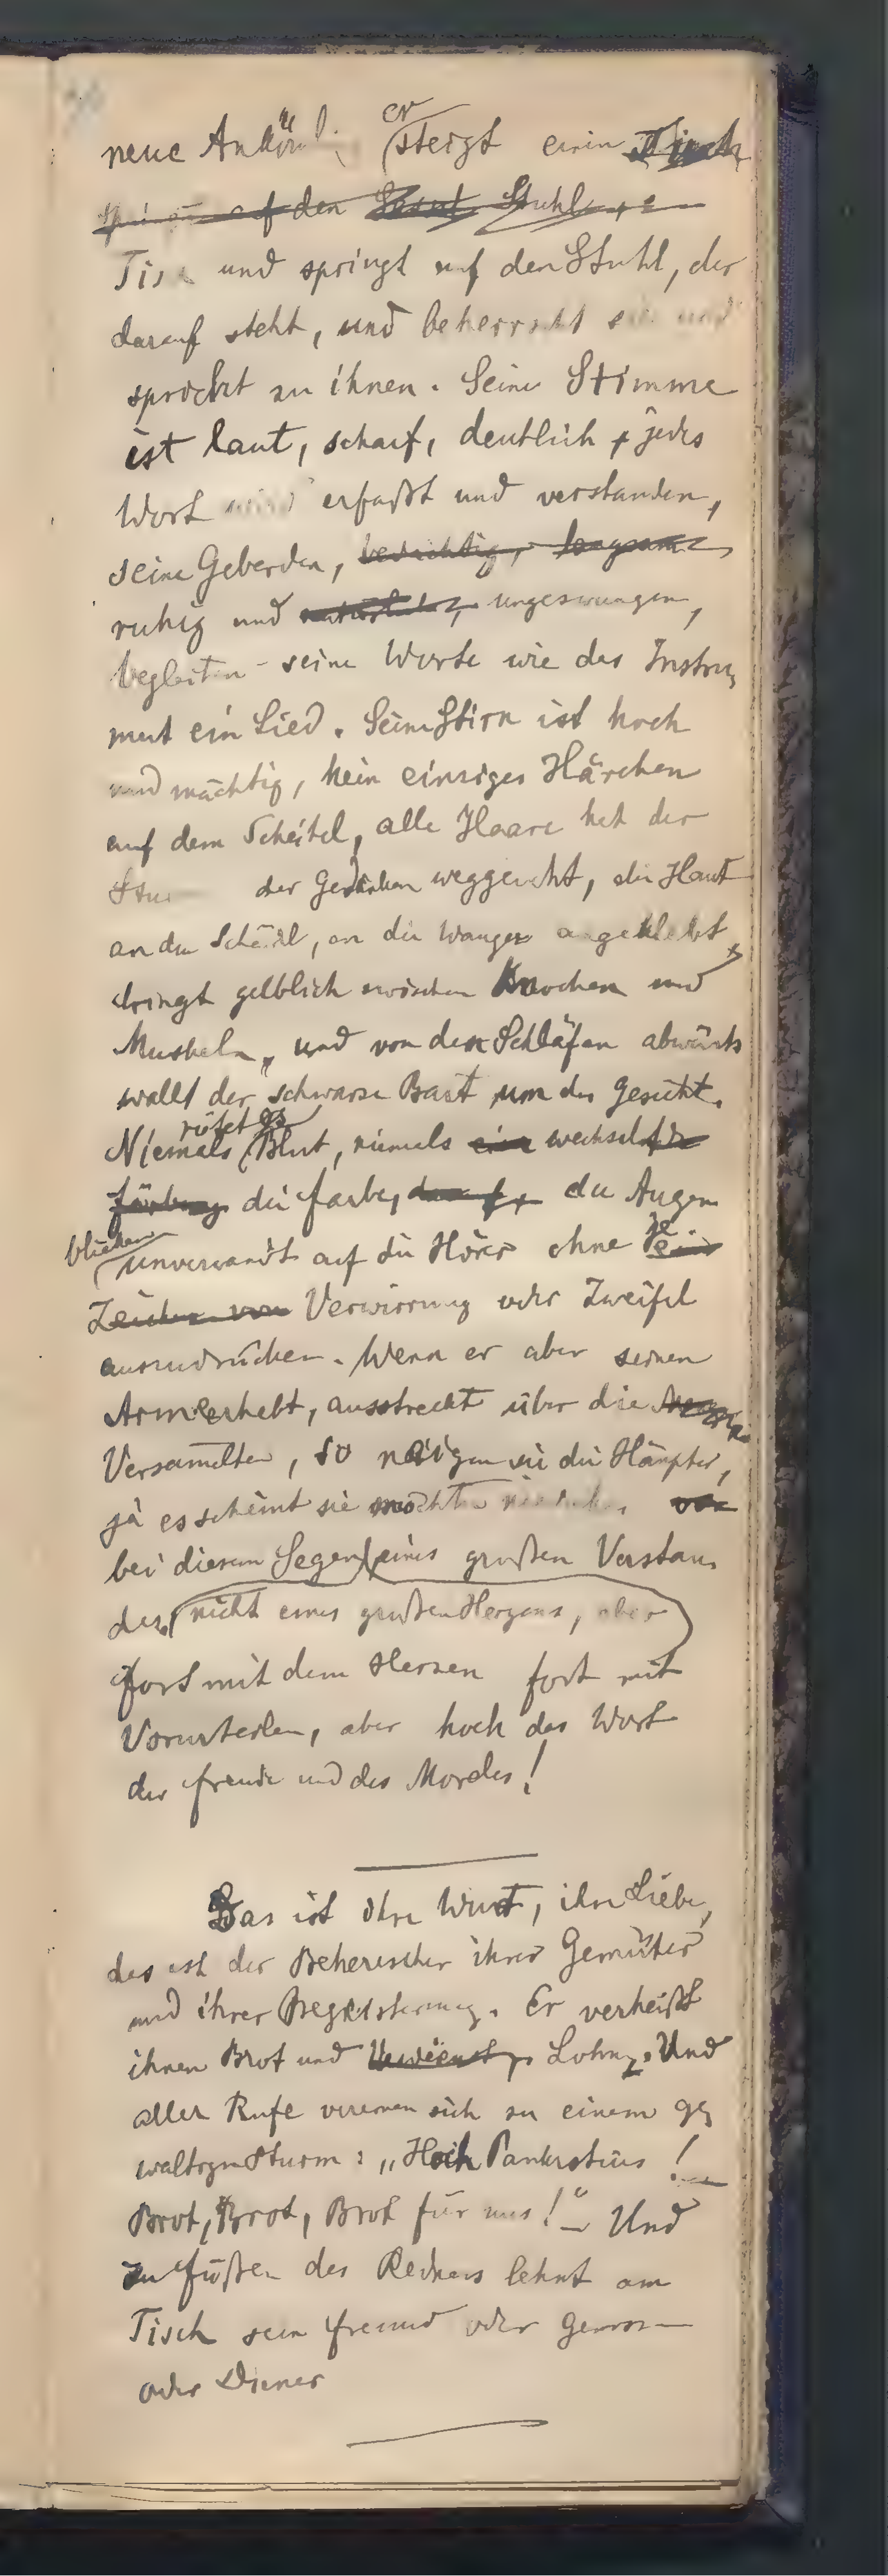 neue Ankömml er steigt einen Tisch
auf den Stuhl
Tisch und springt auf den Stuhl, der
darauf steht, und beherrscht sie und
spricht zu ihnen. Seine Stimme
ist laut, scharf, deutlich, jedes
Wort wird erfaßt und verstanden,
seine Geberden, bedächtig, langsam,
ruhig und natürlich, ungezwungen,
begleiten seine Worte wie das Instru„
ment ein Lied. Seine Stirn ist hoch
und mächtig, kein einziges Härchen
auf dem Scheitel, alle Haare hat der
der Gedanken weggerückt, die Haut
an den Schädel, an die Wangen angeklebt
dringt gelblich zwischen Knochen und
Muskeln, und von den Schläfen abwärts
wallt der schwarze Bart um das Gesicht.
rötet es
Niemals Blut, niemals ein wechselt die
Färbung die Farbe, die Augen
blicken
unverwandt auf die Hörer ohne je ein
Zeichen von Verwirrung oder Zweifel
auszudrücken. Wenn er aber seinen
Arm erhebt, ausstreckt über die
Versamelten, so neigen sie die Häupter,
ja es scheint sie möchten vor
bei diesem Segen eines großen Verstan„
des, nicht eines großen Herzens, aber
fort mit dem Herzen fort mit
Vorurteilen, aber hoch das Wort
der Freude und des Mordes!
Das ist ihre Wut, ihre Liebe,
das ist der Beherrscher ihrer Gemüter
und ihrer Begeisterung. Er verheißt
ihnen Brot und Verdienst, Lohn. Und
aller Rufe vereinen sich zu einem ge„
waltigen Sturm: „Hoch Pankratius! –
Brot, Brot, Brot für uns!“ – Und
zu Füßen des Redners lehnt am
Tisch sein Freund oder Genosse
oder Diener